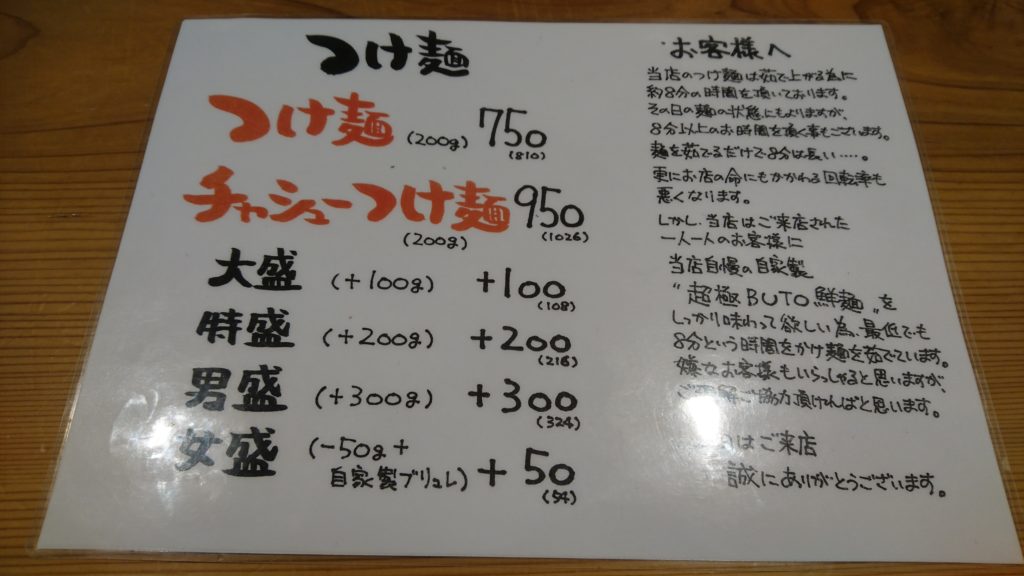 つけ麺
つけ麺 (200g) 750
(810)
チャーシューつけ麺 950
(200g) (1026)
大盛 (+100g) +100
(108)
特盛 (+200g) +200
(216)
男盛 (+300g) +300
(324)
女盛 (-50g+
自家製ブリュレ) +50
(54)
お客様へ
当店のつけ麺は茹で上がる為に
約8分の時間を頂いております。
その日の麺の状態にもよりますが、
8分以上のお時間を頂く事もございます。
麺を茹でるだけで8分は長い‥‥。
更にお店の命にもかかわる回転率も
悪くなります。
しかし、当店はご来店された
一人一人のお客様に
当店自慢の自家製
"超極BUTO鮮麺"を
しっかり味わって欲しい為、最低でも
8分という時間をかけ麺を茹でています。
嫌なお客様もいらっしゃると思いますが、
ご理解ご協力頂ければと思います。
はご来店
誠にありがとうございます。